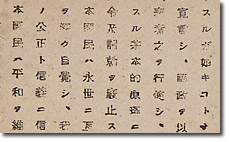 スルガ如キコト
宣言シ、國政ヲ以
表者之ヲ行使シ、
スル基本的原理ニ
令及詔ヲ廢止ス
本國民ハ永世ニ亙
深ク自覺シ、我
ノ公正ト信義ニ信
本國民ハ平和ヲ維